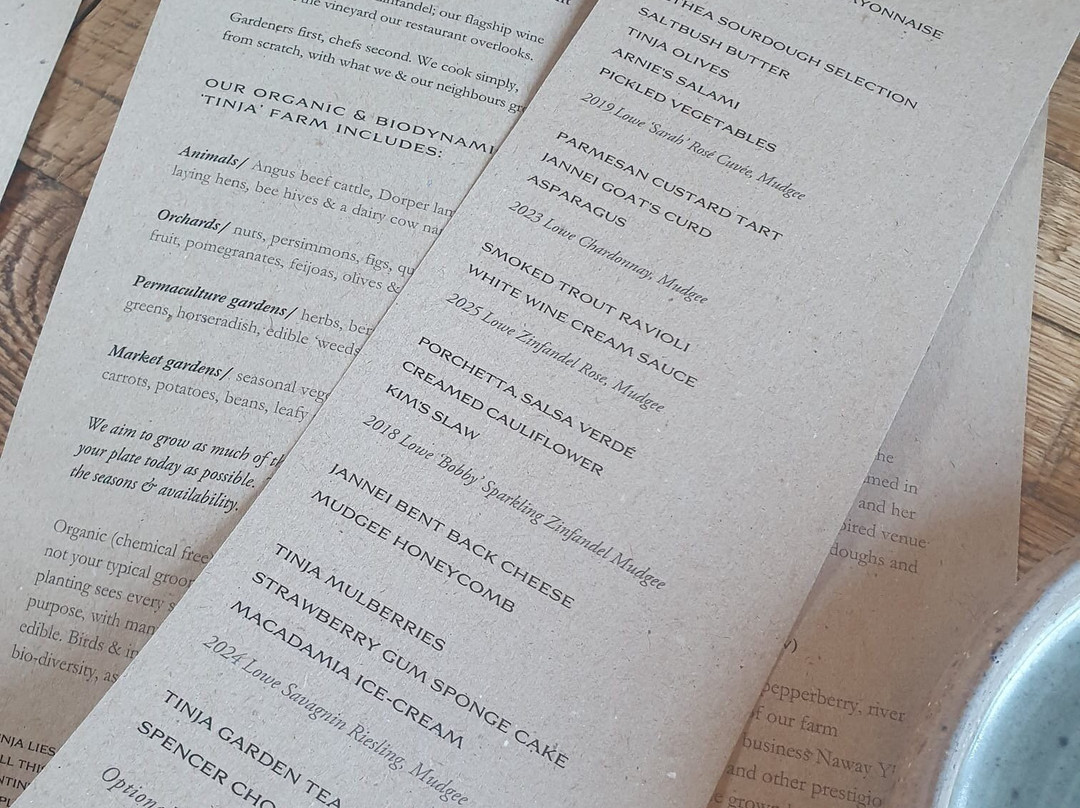 our flagship wine
the vineyard our restaurant overlooks.
Gardeners first, chefs second. We cook simply,
from scratch, with what we & our neighbours
OUR ORGANIC &
'TINJA' FARM INCLUDES:
Animals/ Angus beef cattle, Dorper
laying hens, bee hives & a dairy cow
Orchards/ nuts, persimmons, figs,
fruit, pomegranates, feijoas, olives &
Permaculture gardens/ herbs,
greens, horseradish, edible 'weeds
Market gardens/ seasonal
carrots, potatoes, beans, leafy
We aim to grow as much of
your plate today as possible.
the seasons & availability.
Organic (chemical free)
not your typical
planting sees every
purpose, with
edible. Birds &
bio-diversity, as
LIES
SOURDOUGH SELECTION
SALTBUSH BUTTER
TINJA OLIVES
ARNIE'S SALAMI
PICKLED VEGETABLES
2019 Lowe 'Sarah' Rosé Cuvée, Mudgee
PARMESAN CUSTARD TART
JANNEI GOAT'S CURD
ASPARAGUS
2023 Lowe Chardonnay, Mudgee
SMOKED TROUT RAVIOLI
WHITE WINE CREAM SAUCE
2025 Lowe Zinfandel Rose, Mudgee
PORCHETTA, SALSA VERDÉ
CREAMED CAULIFLOWER
KIM'S SLAW
2018 Lowe 'Bobby' Sparkling Zinfandel Mudgee
JANNEI BENT BACK CHEESE
MUDGEE HONEYCOMB
TINJA MULBERRIES
STRAWBERRY GUM SPONGE CAKE
MACADAMIA ICE-CREAM
2024 Lowe Savagnin Riesling, Mudgee
TINJA GARDEN TEA
SPENCER
in
and her
venue
and
pepperberry, river
of our farm
business Naway
and other